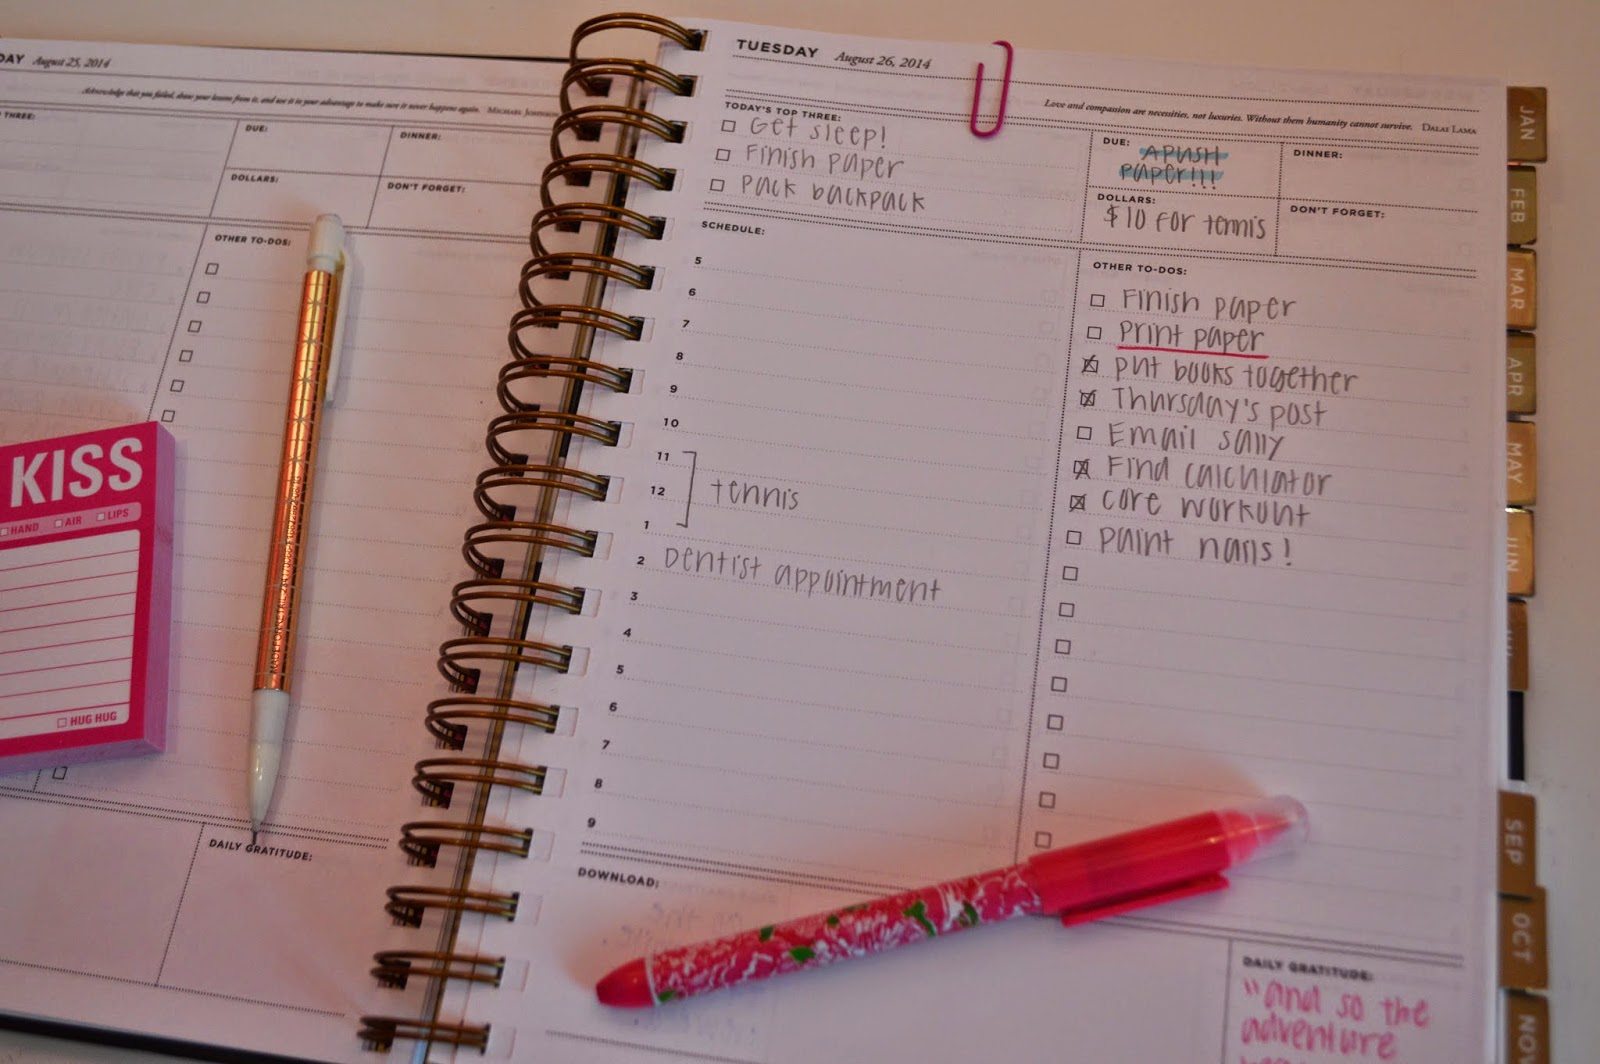 DAY August 25, 2014
Acknowledge that you failed, draw your lessons from it, and use it to your advantage to make sure it never happens again. MICHAEL JOHNSON
THREE:
DUE:
DINNER:
DOLLARS:
DON'T FORGET:
OTHER TO-DOS:
DAILY GRATITUDE:
KISS
HAND AIR LIPS
HUG HUG
TUESDAY August 26, 2014
Love and compassion are necessities, not luxuries. Without them humanity cannot survive. DALAI LAMA
TODAY'S TOP THREE:
Get sleep!
Finish paper
pack backpack
DUE: APUSH
paper!!!
DINNER:
DOLLARS:
$10 for tennis
DON'T FORGET:
SCHEDULE:
5
6
7
8
9
10
11
12 tennis
1
2 Dentist appointment
3
4
5
6
7
8
9
OTHER TO-DOS:
Finish paper
print paper
put books together
Thursday's post
Email sally
Find calculator
core workout
paint nails!
DOWNLOAD:
DAILY GRATITUDE:
"and so the
adventure
JAN
FEB
MAR
APR
MAY
JUN
SEP
OCT
NO